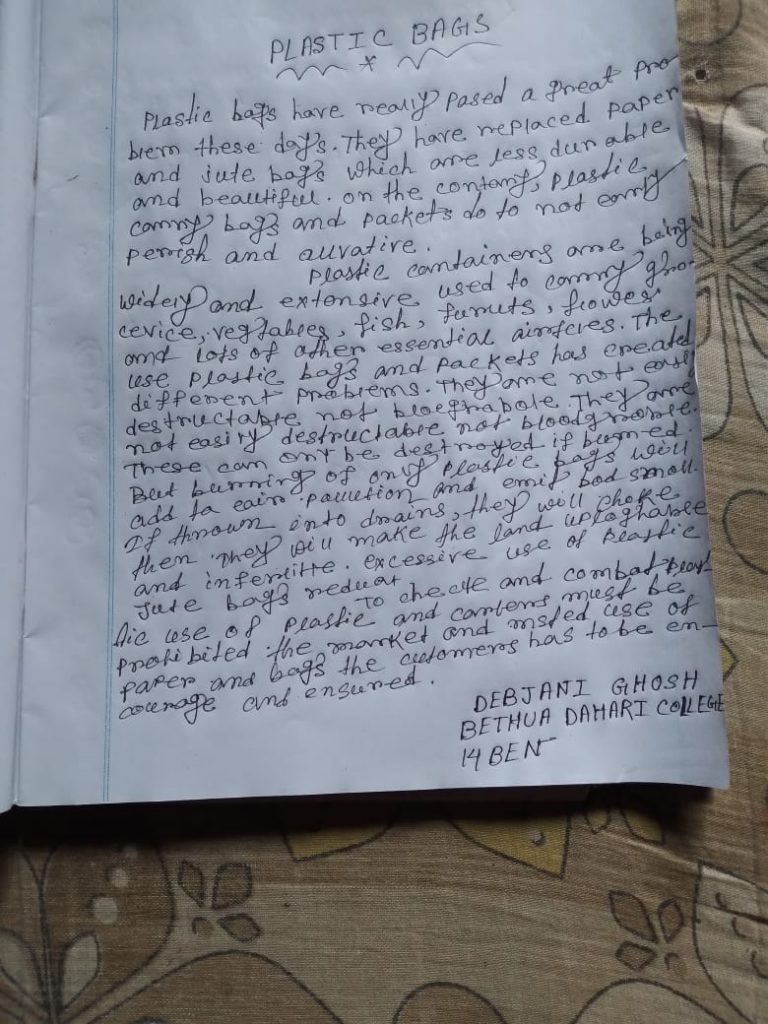 PLASTIC BAGS
Plastic bags have really pased a great pro-
blem these day's. They have replaced paper
and jute bags which are less durable
and beautiful. on the contany, plastic
carry bags and packets do to not early
perish and
Plastic containers are being
widely and extensive used to carry gro-
cevice, vegtables, fish, furuts, flower
and lots of other essential
use plastic bags and packets has created
different problems. They are not easy
destructable not They are
not easily destructable not
These can only be destroyed if burned.
But burning of only plastic bags will
add to eair pollution and emit bad small.
If thrown into drains, they will choke
then. They will make the land uploghable
and infertitte. excessive use of plastic
Jute bags reduat
To checite and combat
tic use of plastic and carbens must be
prohibited the market and use of
paper and bags the cutomers has to be en-
courage and ensured.
DEBJANI GHOSH
BETHUA DAHARI COLLEGE
14 BEN